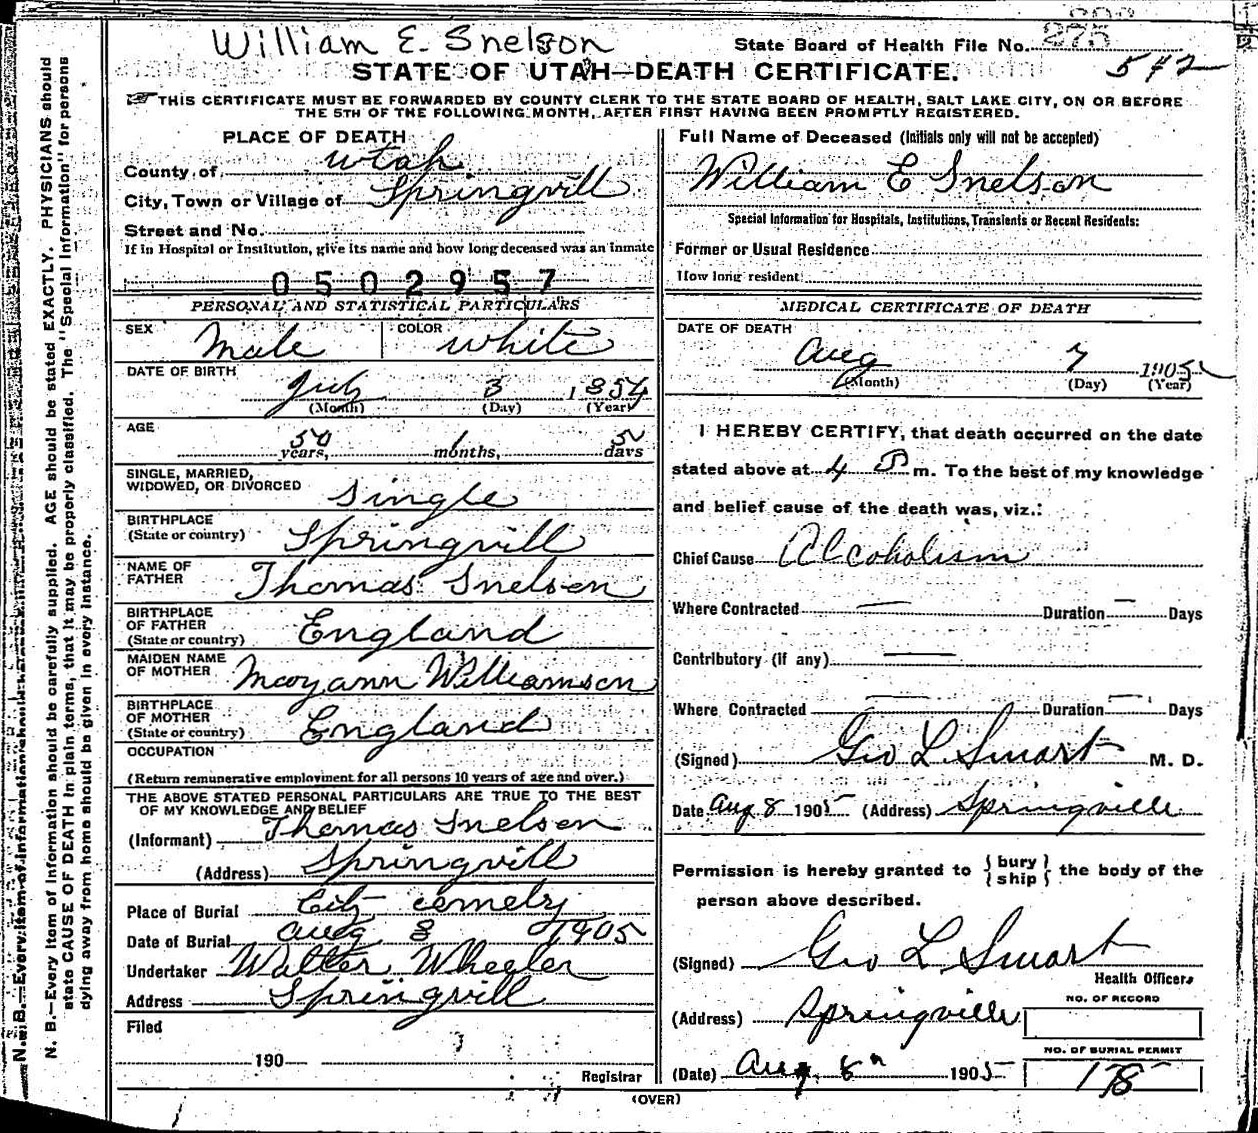 William E. Snelson
State Board of Health File No. 275
542
STATE OF UTAH—DEATH CERTIFICATE.
THIS CERTIFICATE MUST BE FORWARDED BY COUNTY CLERK TO THE STATE BOARD OF HEALTH, SALT LAKE CITY, ON OR BEFORE
THE 5TH OF THE FOLLOWING MONTH, AFTER FIRST HAVING BEEN PROMPTLY REGISTERED.
N. B.—Every item of information should be carefully supplied. AGE should be stated EXACTLY. PHYSICIANS should
state CAUSE OF DEATH in plain terms, that it may be properly classified. The "Special Information" for persons
dying away from home should be given in every instance.
PLACE OF DEATH
County of Utah
City, Town or Village of Springvill
Street and No.
If in Hospital or Institution, give its name and how long deceased was an inmate
0502957
PERSONAL AND STATISTICAL PARTICULARS
SEX Male COLOR White
DATE OF BIRTH
July 3 1854
(Month) (Day) (Year)
AGE
50 years, 1 months, 5 days
SINGLE, MARRIED,
WIDOWED, OR DIVORCED Single
BIRTHPLACE
(State or country) Springvill
NAME OF
FATHER Thomas Snelson
BIRTHPLACE
OF FATHER
(State or country) England
MAIDEN NAME
OF MOTHER Maryann Williamson
BIRTHPLACE
OF MOTHER
(State or country) England
OCCUPATION
(Return remunerative employment for all persons 10 years of age and over.)
THE ABOVE STATED PERSONAL PARTICULARS ARE TRUE TO THE BEST
OF MY KNOWLEDGE AND BELIEF
(Informant) Thomas Snelson
(Address) Springvill
Place of Burial City cemetry
Date of Burial Aug 8 1905
Undertaker Walter Wheeler
Address Springvill
Filed
190
Registrar
Full Name of Deceased (Initials only will not be accepted)
William E Snelson
Special Information for Hospitals, Institutions, Transients or Recent Residents:
Former or Usual Residence
How long resident
MEDICAL CERTIFICATE OF DEATH
DATE OF DEATH
Aug 7 1905
(Month) (Day) (Year)
I HEREBY CERTIFY, that death occurred on the date
stated above at 4 P m. To the best of my knowledge
and belief cause of the death was, viz.:
Chief Cause Alcoholism
Where Contracted — Duration — Days
Contributory (if any) —
Where Contracted — Duration — Days
(Signed) Geo L Smart M. D.
Date Aug 8 1905 (Address) Springville
Permission is hereby granted to {bury
ship} the body of the
person above described.
(Signed) Geo L Smart
Health Officer.
(Address) Springville
NO. OF RECORD
NO. OF BURIAL PERMIT
(Date) Aug. 8th 1905 178
(OVER)